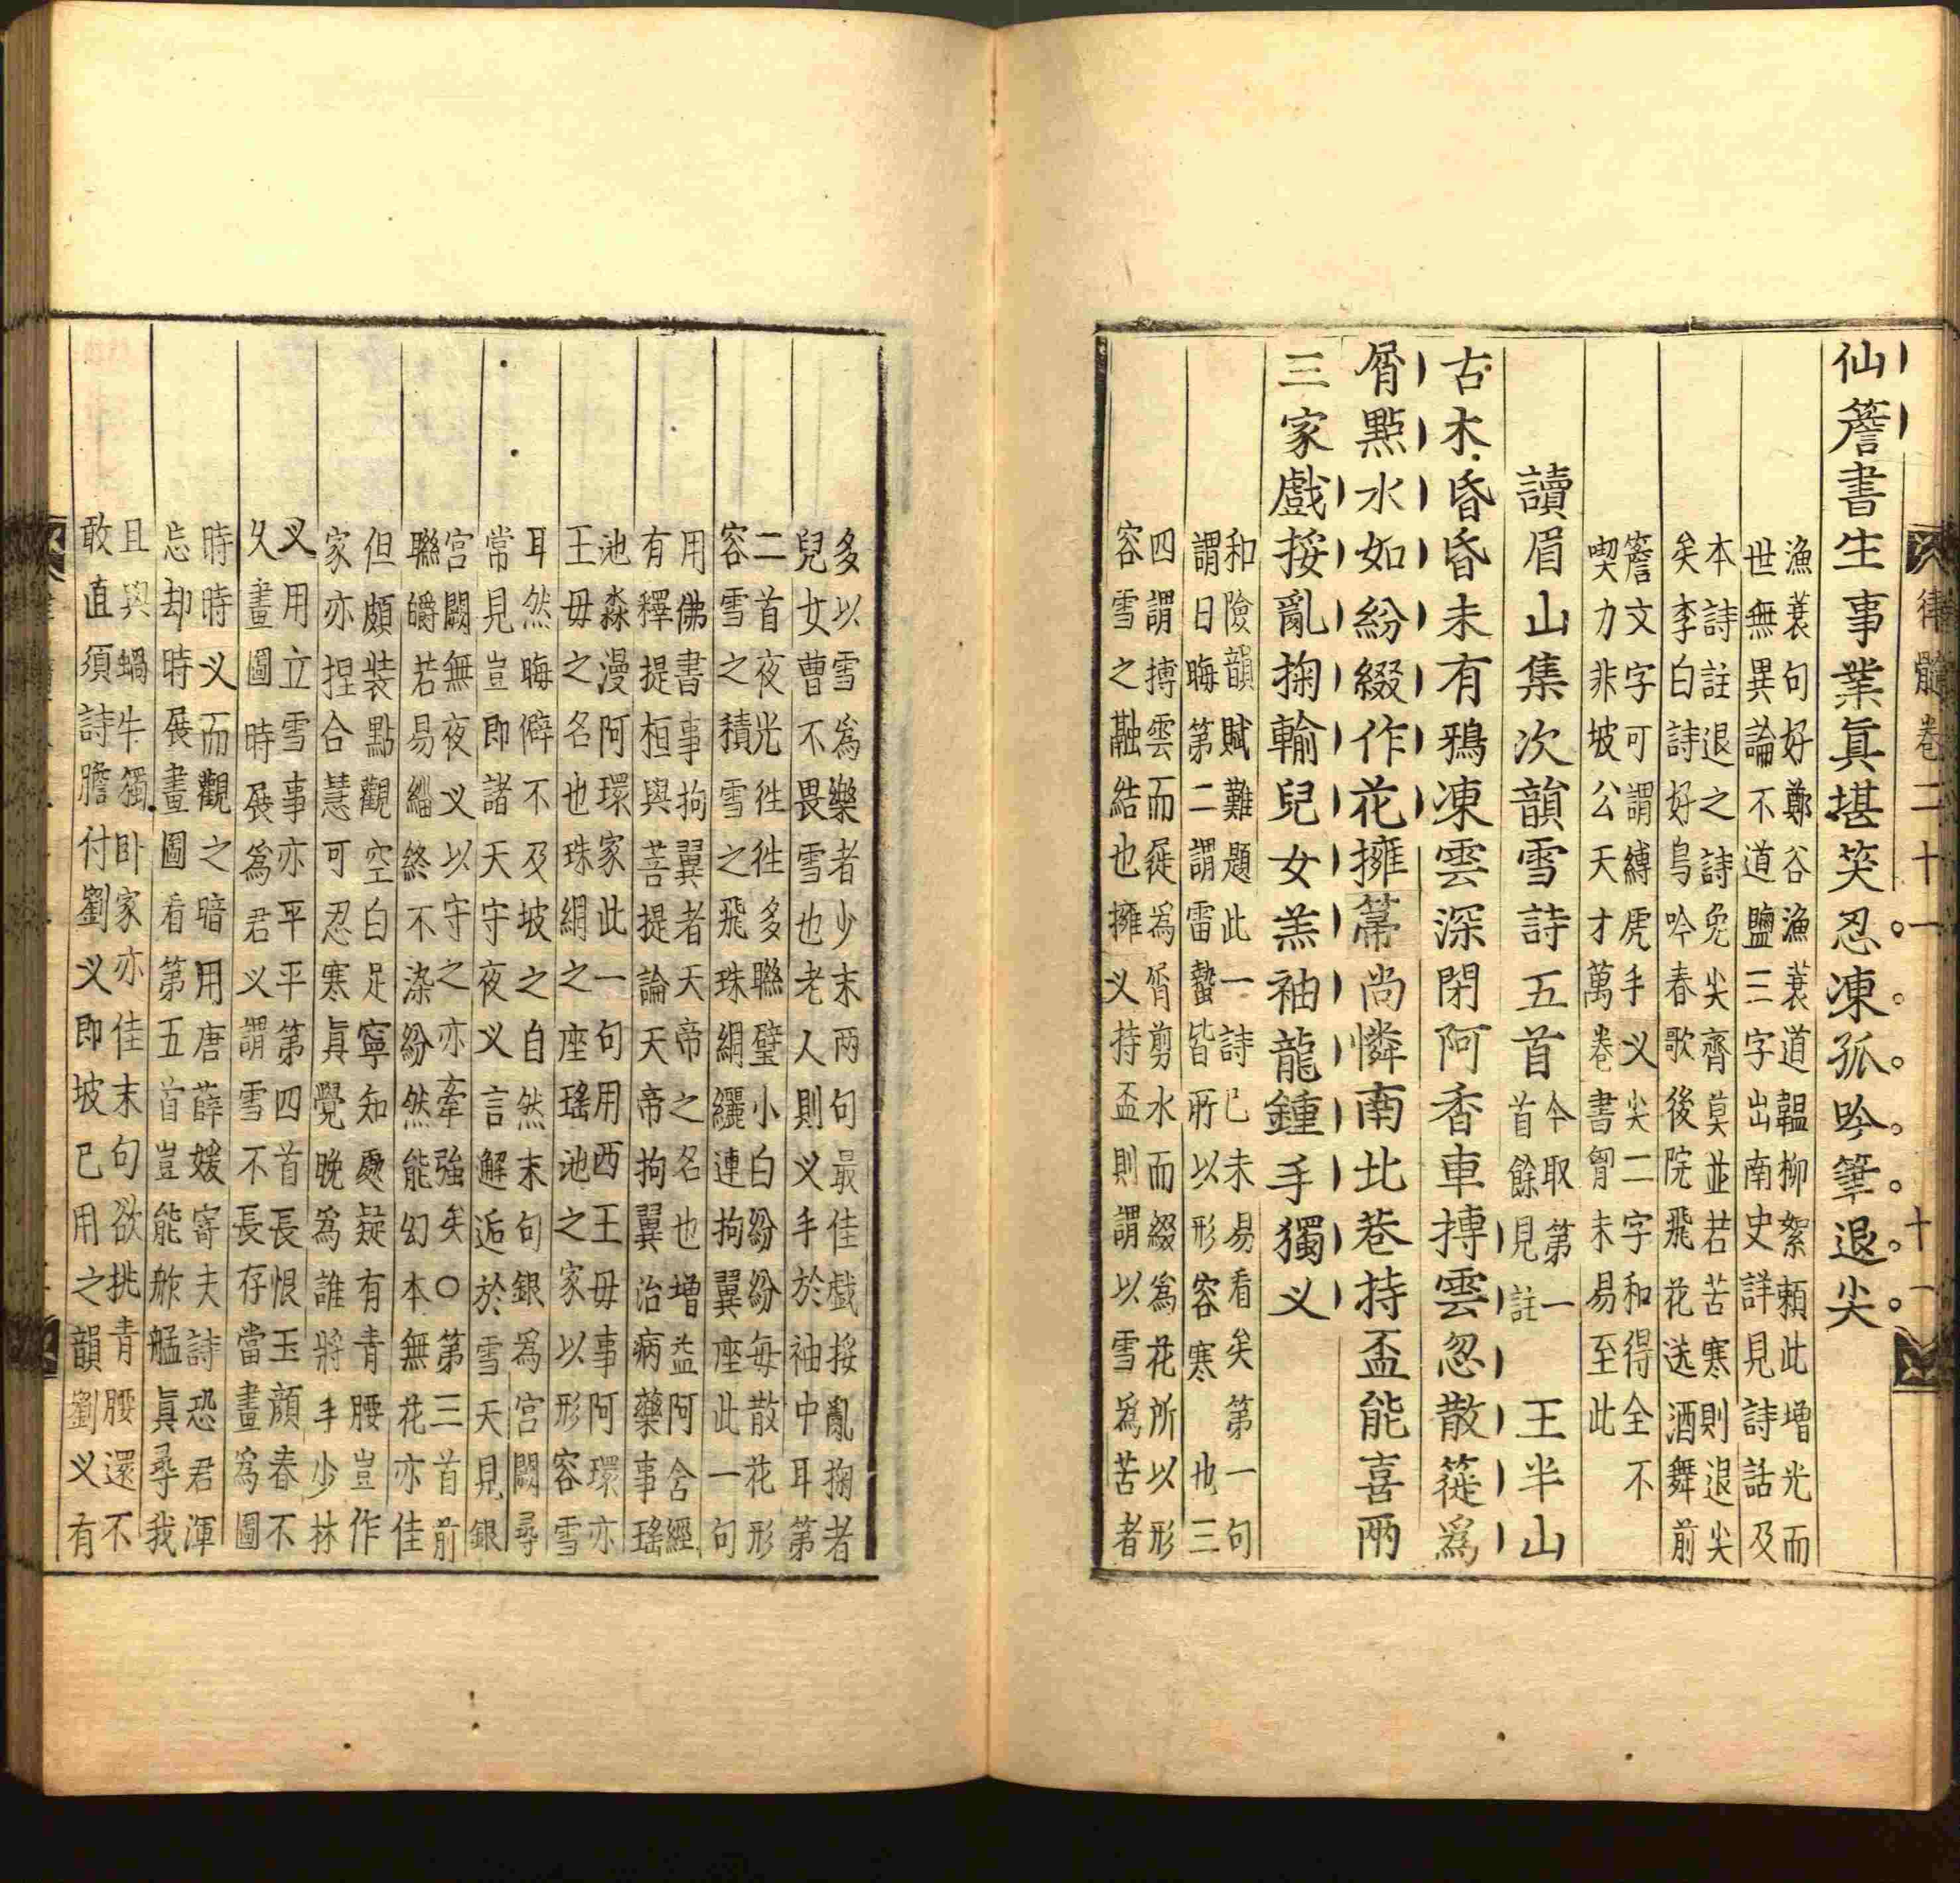 律髓卷二十一
十一
仙簷書生事業眞堪笑忍凍孤吟筆退尖
漁蓑句好鄭谷漁蓑道韞柳絮賴此增光而
世無異論不道鹽三字出南史詳見詩話及
本詩註退之詩兔尖齊莫並若苦寒則退尖
矣李白詩好鳥吟春歌後院飛花送酒舞前
簷文字可謂縛虎手义尖二字和得全不
喫力非坡公天才萬卷書胷未易至此
讀眉山集次韻雪詩五首今取第一
首餘見註
王半山
古木昏昏未有鴉凍雲深閉阿香車摶雲忽散簁爲
屑點水如紛綴作花擁箒尚憐南北巷持盃能喜兩
三家戲挼亂掬輸兒女羔袖龍鍾手獨义
和險韻賦難題此一詩已未易看矣第一句
謂日晦第二謂雷蟄皆所以形容寒也三
四謂摶雲而簁爲屑剪水而綴爲花所以形
容雪之融結也擁义持盃則謂以雪爲苦者
多以雪爲樂者少末兩句最佳戲挼亂掬者
兒女曹不畏雪也老人則义手於袖中耳第
二首夜光徃徃多聯璧小白紛紛每散花形
容雪之積雪之飛珠網纚連拘翼座此一句
用佛書事拘翼者天帝之名也增益阿含經
有釋提桓與菩提論天帝拘翼治病藥事瑤
池淼漫阿環家此一句用西王毋事阿環亦
王毋之名也珠網之座瑤池之家以形容雪
耳然晦僻不及坡之自然末句銀爲宮闕尋
常見豈即諸天守夜义言解逅於雪天見銀
宮闕無夜义以守之亦牽強矣〇第三首前
聯皭若易緇終不染紛然能幻本無花亦佳
但頗裝點觀空白足寧知處疑有青腰豈作
家亦捏合慧可忍寒眞覺晚爲誰將手少林
义用立雪事亦平平第四首長恨玉顏春不
久畫圖時展爲君义謂雪不長存當畫爲圖
時時义而觀之暗用唐薛媛寄夫詩恐君渾
忘却時展畫圖看第五首豈能舴艋眞尋我
且與蝸牛獨卧家亦佳末句欲挑青腰還不
敢直須詩膽付劉义即坡已用之韻劉义有